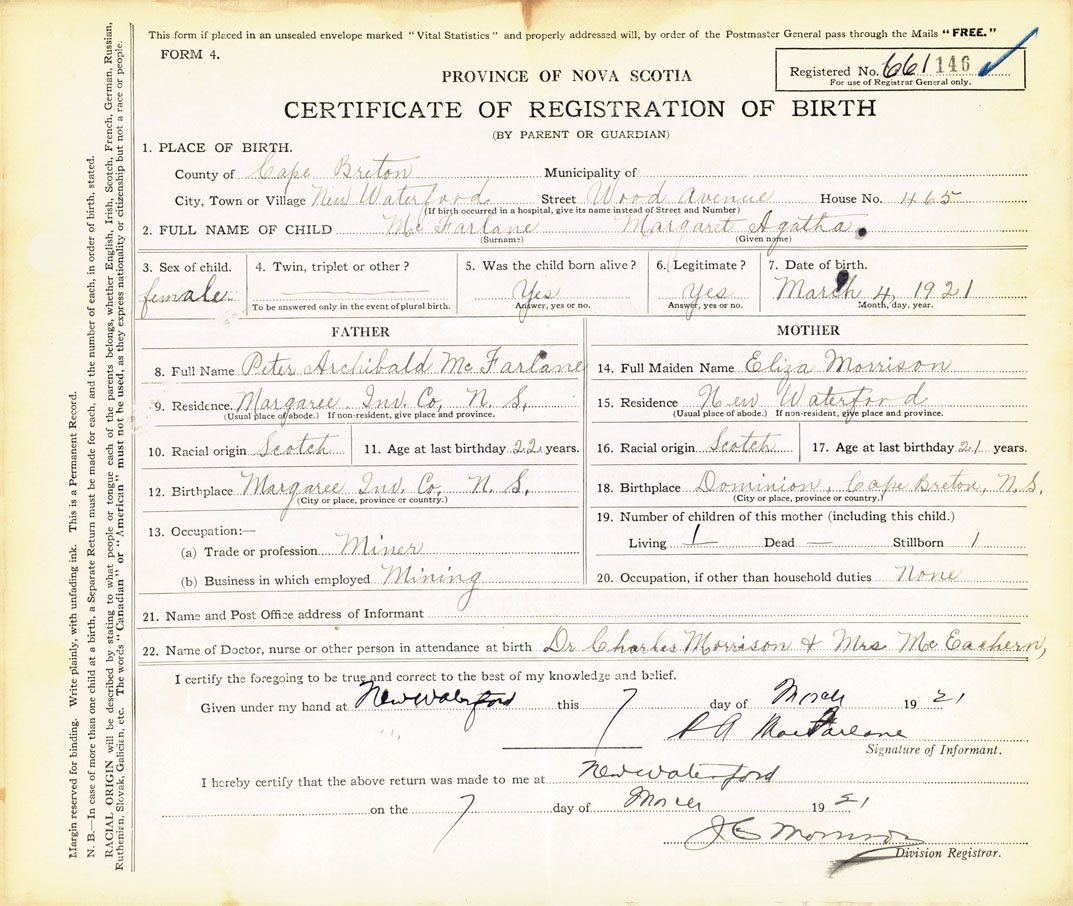 This form if placed in an unsealed envelope marked "Vital Statistics" and properly addressed will, by order of the Postmaster General pass through the Mails "FREE."
FORM 4.
Registered No. 661 146
For use of Registrar General only.
PROVINCE OF NOVA SCOTIA
CERTIFICATE OF REGISTRATION OF BIRTH
(BY PARENT OR GUARDIAN)
1. PLACE OF BIRTH.
County of Cape Breton Municipality of
City, Town or Village New Waterford Street Wood Avenue House No. 465
(If birth occurred in a hospital, give its name instead of Street and Number)
2. FULL NAME OF CHILD McFarlane Margaret Agatha
(Surname) (Given name)
3. Sex of child. female
4. Twin, triplet or other?
To be answered only in the event of plural birth.
5. Was the child born alive? Yes
Answer, yes or no.
6. Legitimate? Yes
Answer, yes or no.
7. Date of birth. March 4, 1921
Month, day, year.
FATHER
8. Full Name Peter Archibald McFarlane
9. Residence. Margaree Inv. Co, N. S,
(Usual place of abode.) If non-resident, give place and province.
10. Racial origin Scotch 11. Age at last birthday 22 years.
12. Birthplace Margaree Inv. Co, N. S,
(City or place, province or country.)
13. Occupation:—
(a) Trade or profession Miner
(b) Business in which employed Mining
MOTHER
14. Full Maiden Name Eliza Morrison
15. Residence New Waterford
(Usual place of abode.) If non-resident, give place and province.
16. Racial origin Scotch 17. Age at last birthday 21 years.
18. Birthplace Dominion, Cape Breton, N.S.
(City or place, province or country.)
19. Number of children of this mother (including this child.)
Living 1 Dead — Stillborn 1
20. Occupation, if other than household duties None
21. Name and Post Office address of Informant
22. Name of Doctor, nurse or other person in attendance at birth Dr Charles Morrison & Mrs McEachern,
I certify the foregoing to be true and correct to the best of my knowledge and belief.
Given under my hand at New Waterford this 7 day of March 1921
P A MacFarlane
Signature of Informant.
I hereby certify that the above return was made to me at New Waterford
on the 7 day of March 1921
J C Morrison
Division Registrar.
Margin reserved for binding. Write plainly, with unfading ink. This is a Permanent Record.
N. B.—In case of more than one child at a birth, a Separate Return must be made for each, and the number of each, in order of birth, stated.
RACIAL ORIGIN will be described by stating to what people or tongue each of the parents belongs, whether English, Irish, Scotch, French, German, Russian,
Ruthenian, Slovak, Galician, etc. The words "Canadian" or "American" must not be used, as they express nationality or citizenship but not a race or people.